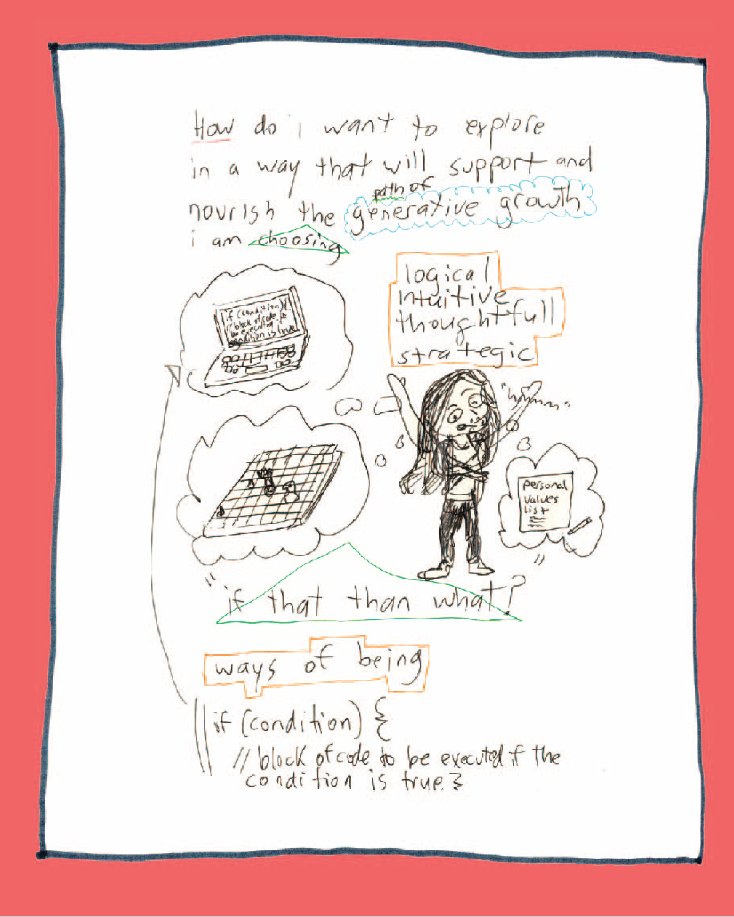 How do i want to explore
in a way that will support and
path of
nourish the generative growth
i am choosing
logical
intuitive
thoughtfull
strategic
if (condition) {
// block of code to
be executed if
condition is true
"hmmm"
personal
values
list
"if that than what?"
ways of being
if (condition) {
// block of code to be executed if the
condition is true }